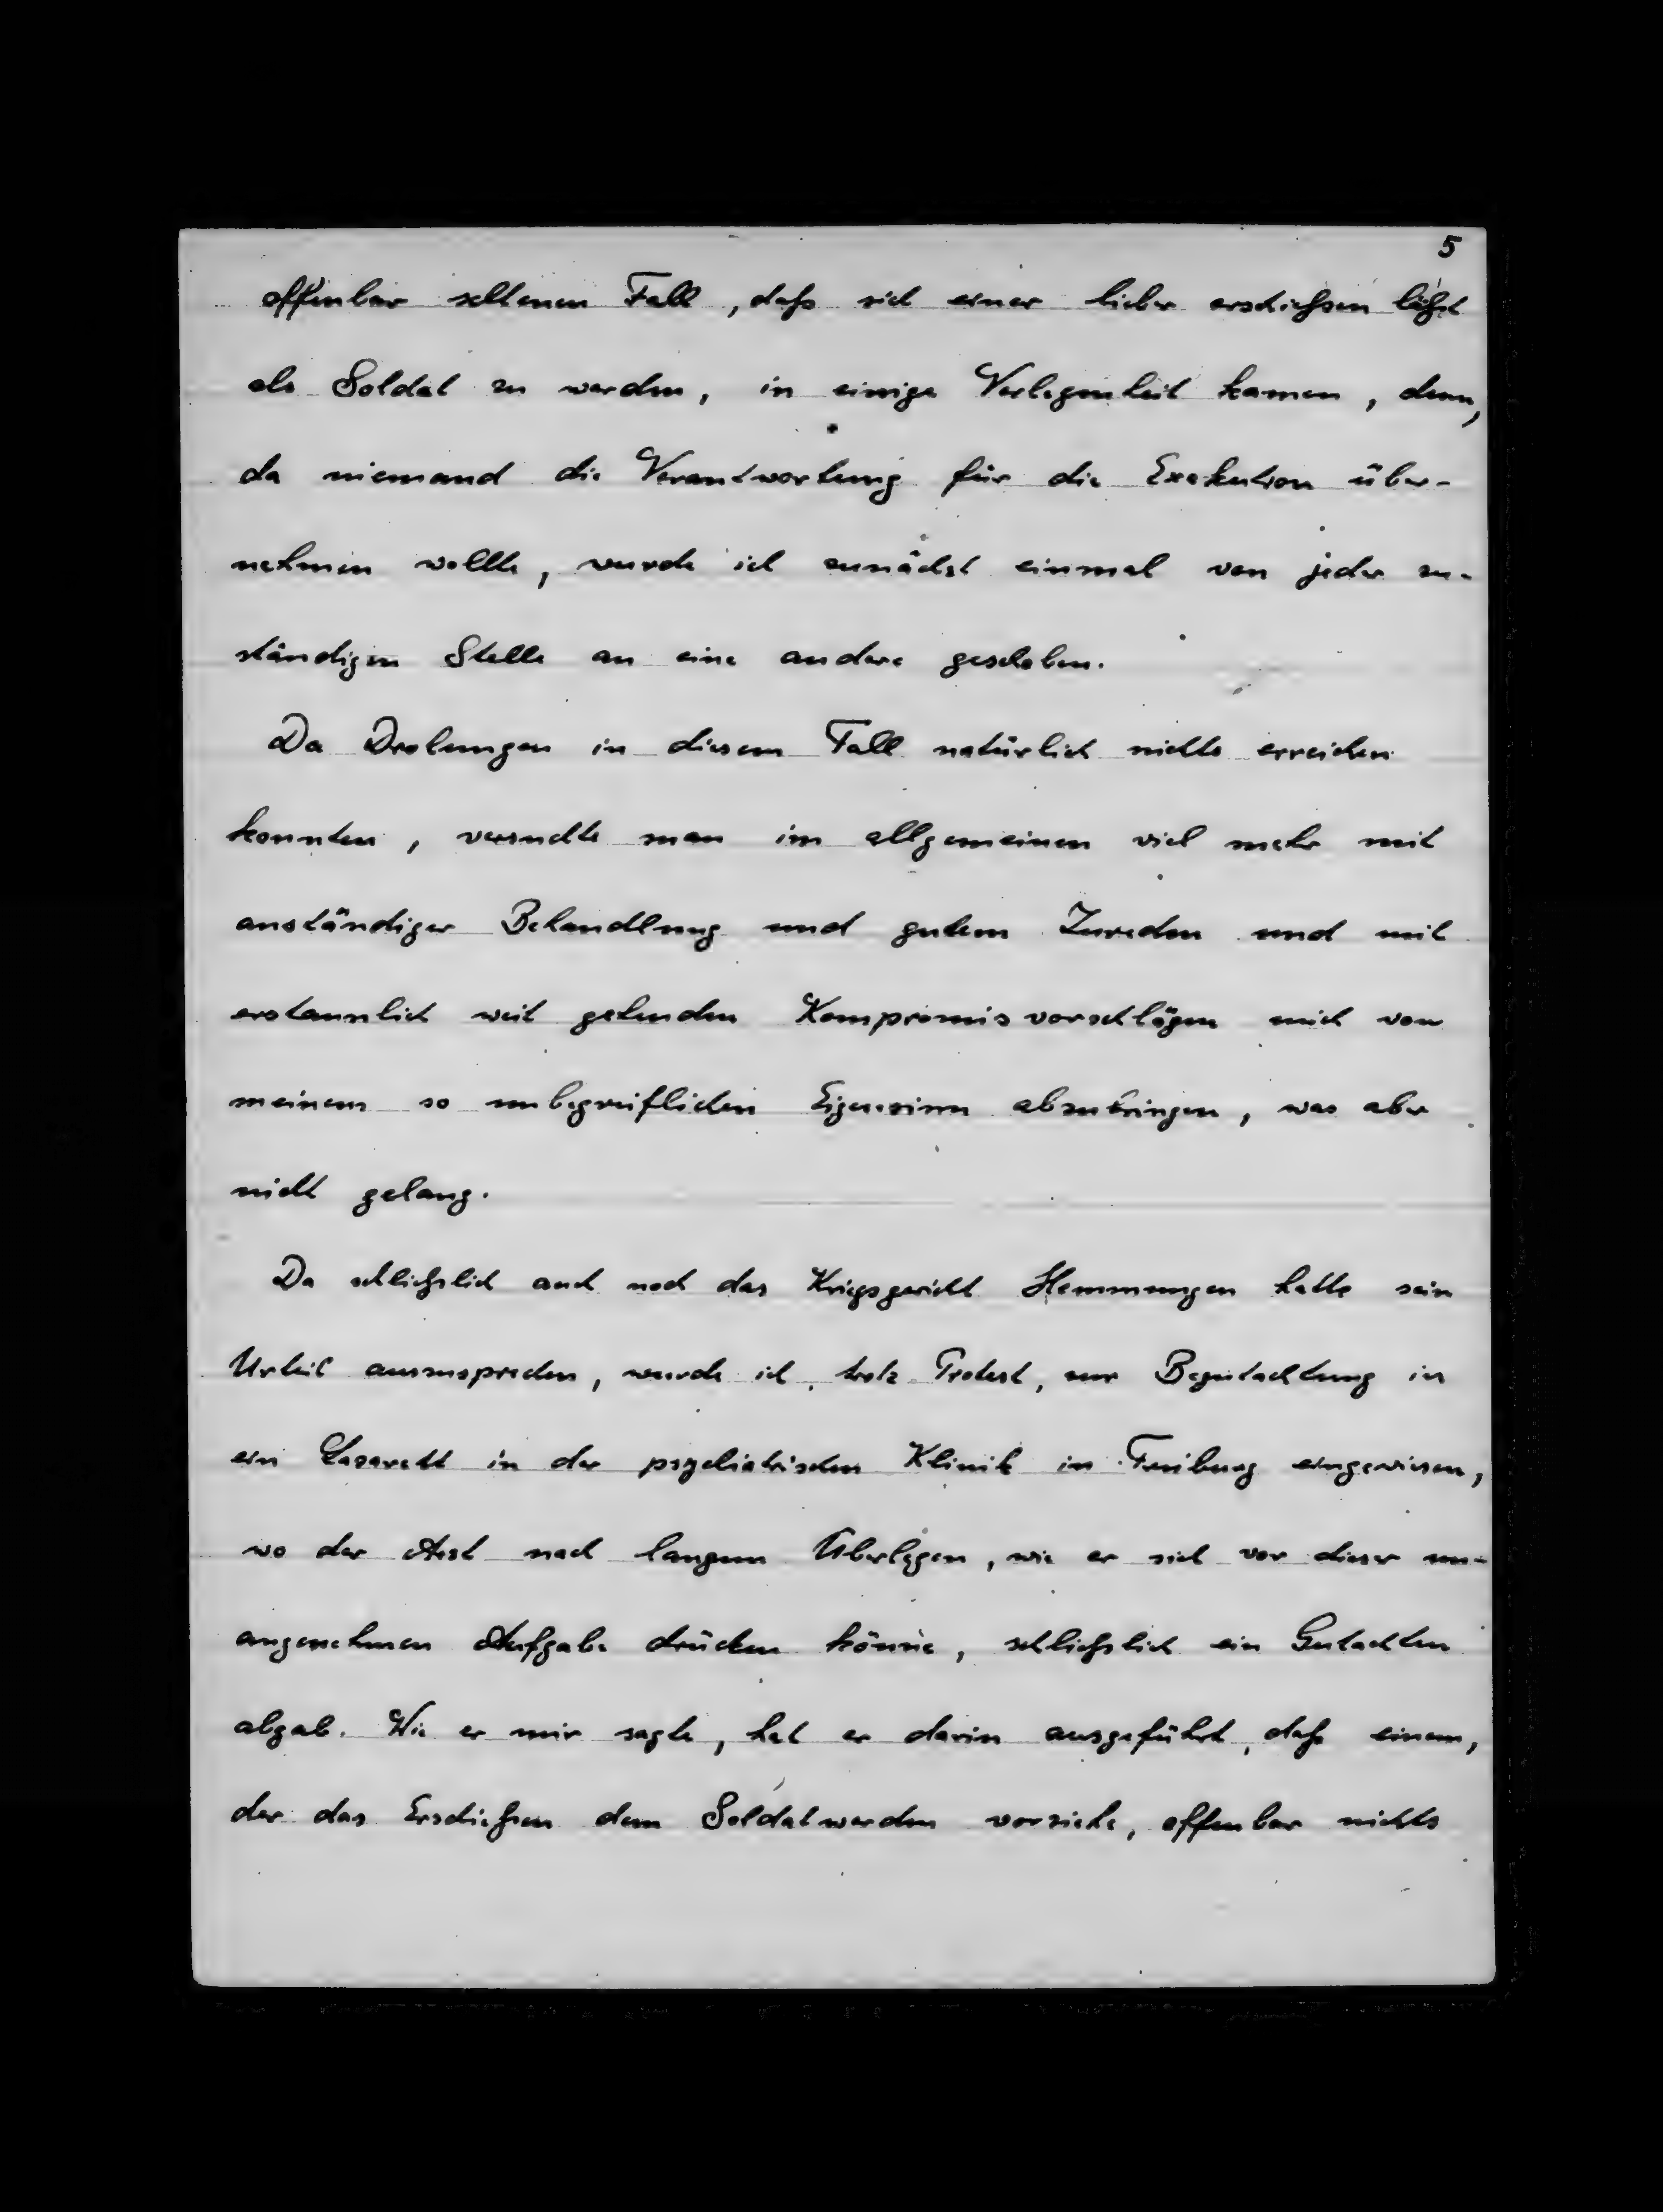 5
offenbar seltenen Fall, daß sich einer lieber erschießen läßt
als Soldat zu werden, in einige Verlegenheit kamen, denn,
da niemand die Verantwortung für die Exekution über-
nehmen wollte, wurde ich zunächst einmal von jeder zu-
ständigen Stelle an eine andere geschoben.
Da Drohungen in diesem Fall natürlich nichts erreichen
konnten, versuchte man im allgemeinen viel mehr mit
anständiger Behandlung und gutem Zureden und mit
erstaunlich weit gehenden Kompromisvorschlägen mich von
meinem so unbegreiflichen Eigensinn abzubringen, was aber
nicht gelang.
Da schließlich auch noch das Kriegsgericht Hemmungen hatte sein
Urteil auszusprechen, wurde ich, trotz Protest, zur Begutachtung in
ein Lazarett in der psychiatrischen Klinik in Freiburg eingewiesen,
wo der Arzt nach langem Überlegen, wie er sich vor dieser un-
angenehmen Aufgabe drücken könne, schließlich ein Gutachten
abgab. Wie er mir sagte, hat er darin ausgeführt, daß einem,
der das Erschießen dem Soldatwerden vorziehe, offenbar nichts